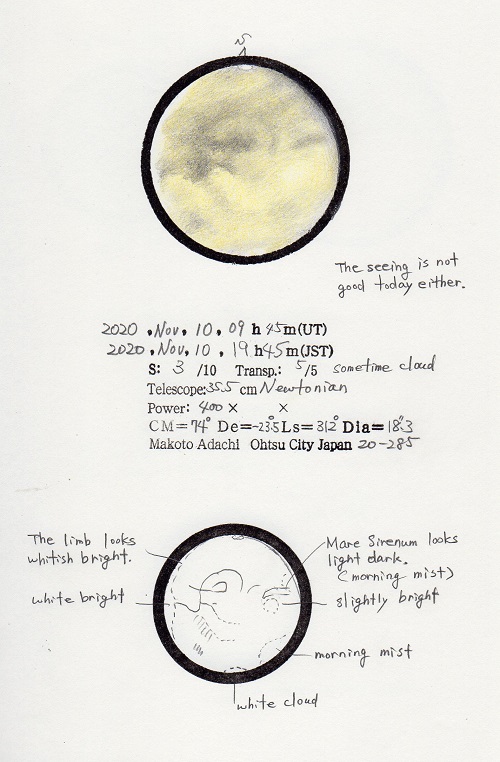 S
The seeing is not
good today either.
2020 , Nov, 10, 09 h 45m(UT)
2020, Nov, 10, 19 h45m(JST)
S: 3 /10 Transp.: 5/5 sometime cloud
Telescope:35.5 cm Newtonian
Power: 400 × ×
CM=74° De=-23.5 Ls=312° Dia=18."3
Makoto Adachi Ohtsu City Japan 20-285
The limb looks
whitish bright.
Mare Sirenum looks
light dark.
(morning mist)
white bright
slightly bright
morning mist
white cloud